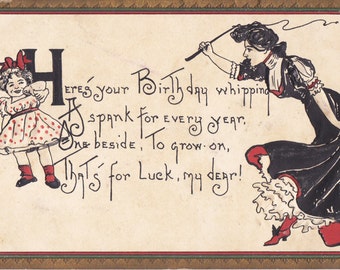 Here's your Birthday whipping
A spank for every year,
One beside, To grow-on,
That's for Luck, my dear!